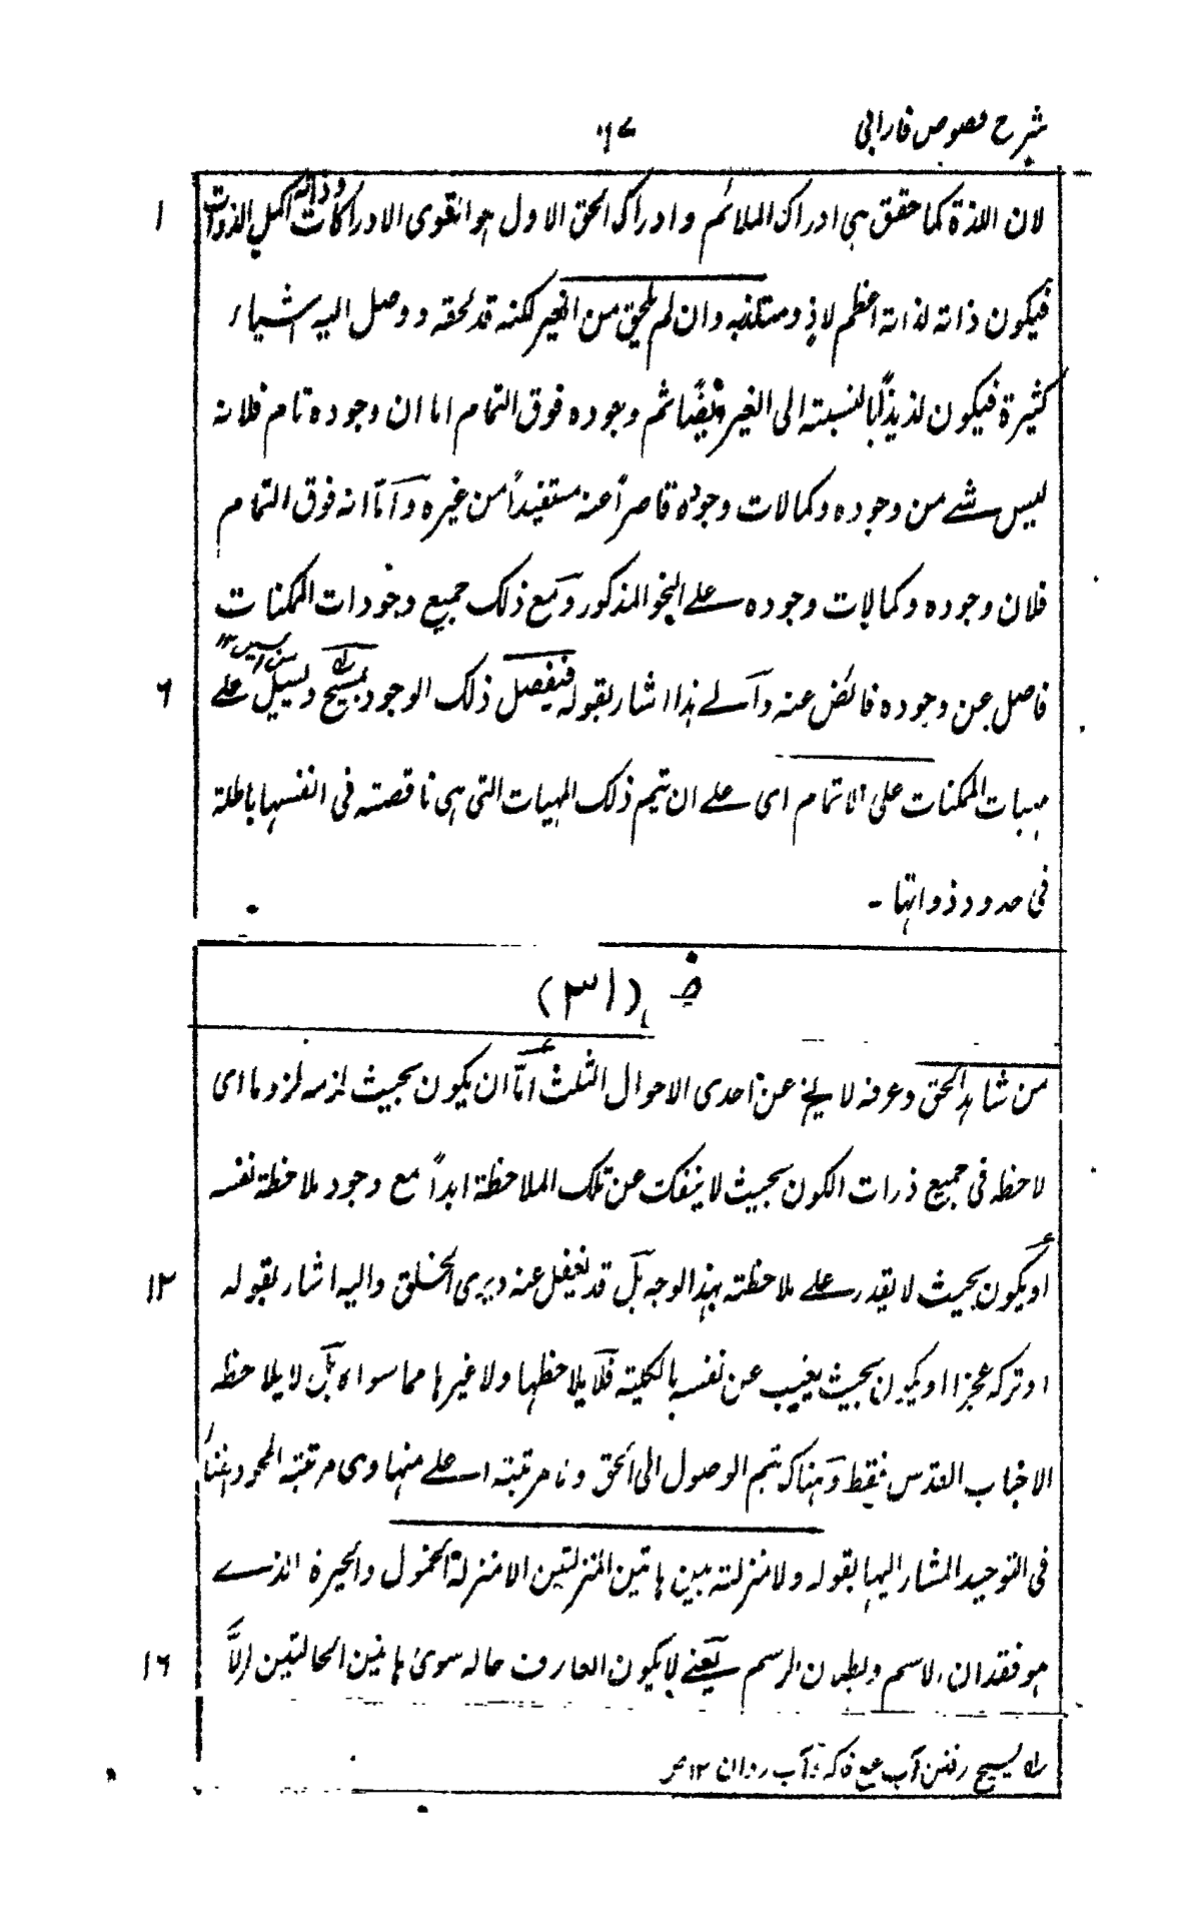 شرح فصوص فارابی ٦٧
١ لان اللذة کما حقق ہی ادراک الملائم و ادراک الحق الاول ہو اقوی الادراکات وذاته اکمل الذوات
فیکون ذاته لذاته اعظم لاذ و مستلذبه وان لم یلحق من الغیر لکنه قد لحقه و وصل الیه اشیاء
کثیرة فیکون لذیذًا بالنسبته الی الغیر ایضًا ثم وجوده فوق التمام اما ان وجوده تام فلانه
لیس شے من وجوده وکمالات وجوده قاصراً عنه مستفیداً من غیره و اما انه فوق التمام
فلان وجوده وکمالات وجوده علے النحو المذکور ومع ذلک جمیع وجودات الممکنات
٦ فاصل عن وجوده فائض عنه و الے ہذا اشار بقوله فیفصل ذلک الوجود یسیح ویسیل علے
مہیات الممکنات علی الاتمام ای علے ان تیم ذلک المہیات التی ہی ناقصته فی انفسہا باطلة
فی حدود ذواتہا ۔
ف (٣١)
من شاہد الحق وعرفه لا یخ عن احدی الاحوال الثلث اما ان یکون بحیث لزمه لزوما ای
لاحظه فی جمیع ذرات الکون بحیث لا ینفک عن تلک الملاحظة ابداً مع وجود ملاحظة نفسه
١٢ او یکون بحیث لا یقدر علے ملاحظته بہذا الوجه بل قد یغفل عنه ویری الخلق والیه اشار بقوله
او ترکه عجزا او یکون بحیث یغیب عن نفسه بالکلیته فلا یلاحظہا ولا غیرہا مما سواه بل لا یلاحظ
الا جناب القدس فقط وہناک تیم الوصول الی الحق و مرتبته اعلے منہا وہی مرتبته المحو والفناء
فی التوحید المشار الیہا بقوله ولا منزلته بین ہاتین المنزلتین الا منزلة الخمول والحیرة الذے
١٦ ہو فقدان الاسم وبطلان الرسم یعنے لا یکون العارف حاله سوی ہاتین الحالتین الا
له یسیح رفتن آب علے آب روان ١٢